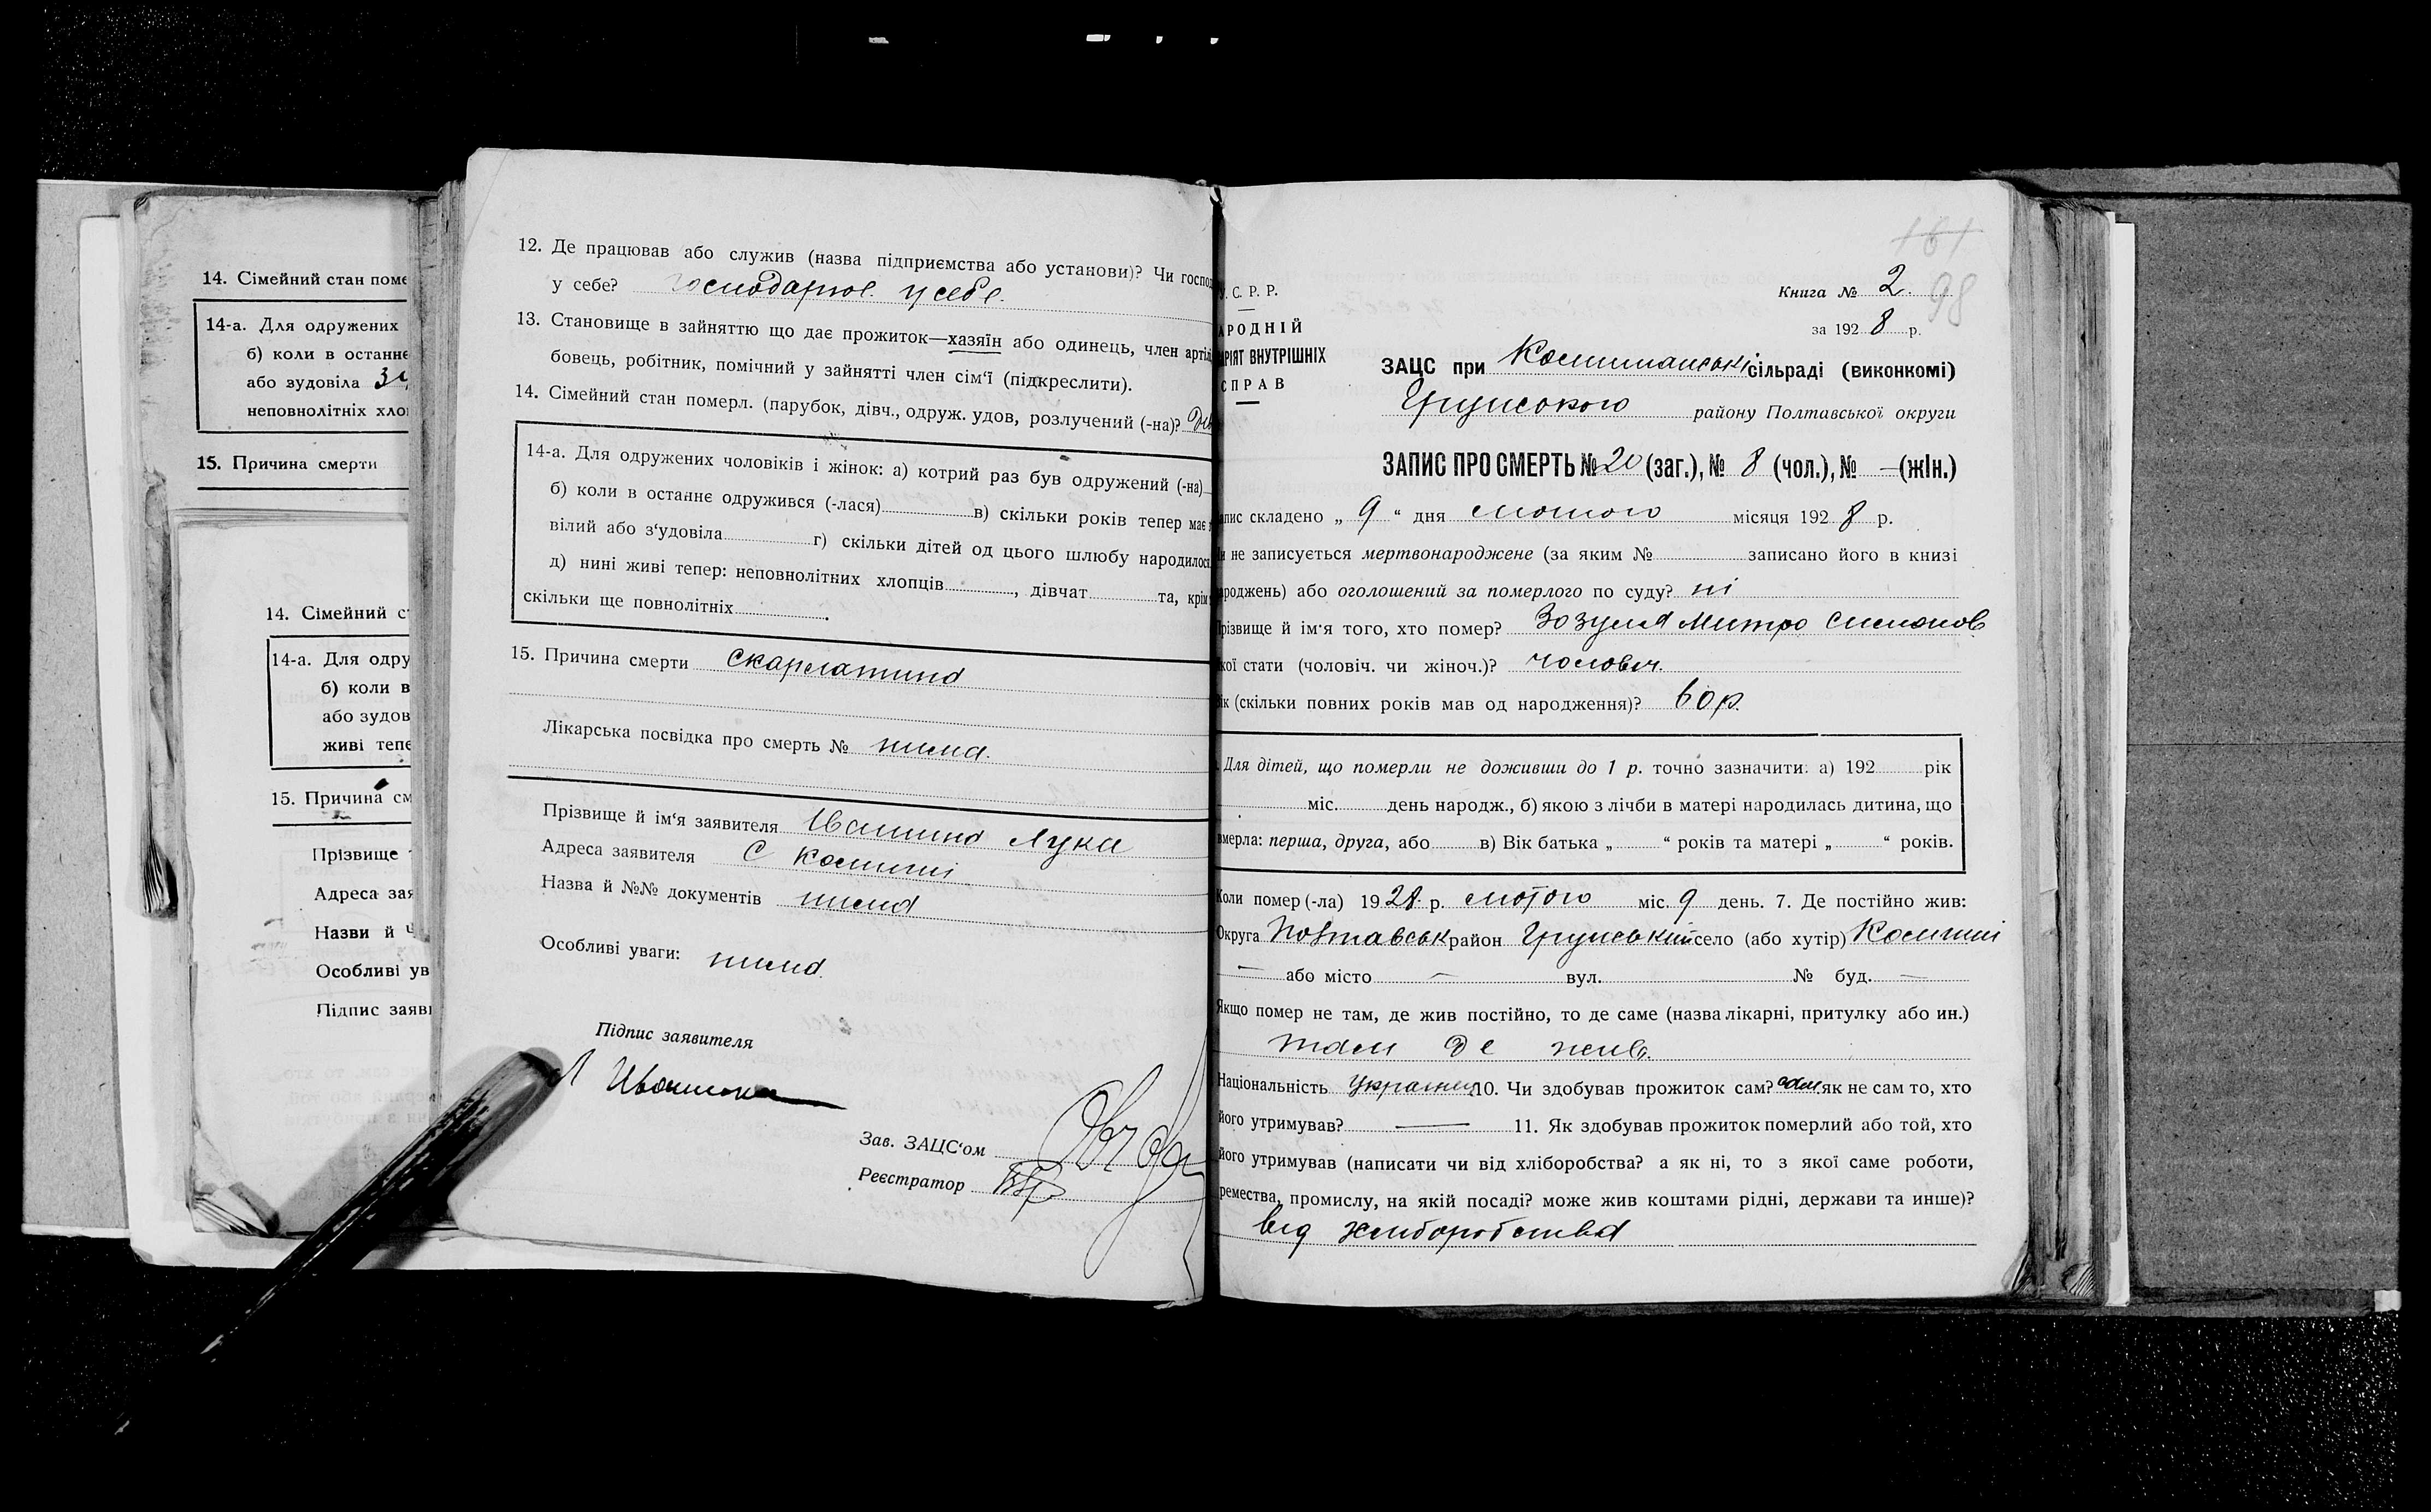 14. Сімейний стан поме
14-а. Для одружених
б) коли в останнє
або зудовіла
неповнолітніх хло
15. Причина смерти
14. Сімейний ст
14-а. Для одру
б) коли в
або зудов
живі тепе
15. Причина см
Прізвище
Адреса зая
Назви й
Особливі ув
Підпис заяві
12. Де працював або служив (назва підприємства або установи)? Чи господ
у себе? господарюв. у себе.
13. Становище в зайняттю що дає прожиток—хазяїн або одинець, член артілі
бовець, робітник, помічний у зайнятті член сім'ї (підкреслити).
14. Сімейний стан померл. (парубок, дівч., одруж. удов, розлучений (-на)?
14-а. Для одружених чоловіків і жінок: а) котрий раз був одружений (-на)
б) коли в останнє одружився (-лася) в) скільки років тепер має
вілий або з'удовіла г) скільки дітей од цього шлюбу народилось
д) нині живі тепер: неповнолітних хлопців , дівчат та, крім
скільки ще повнолітніх .
15. Причина смерти скарлатина
Лікарська посвідка про смерть № нима.
Прізвище й ім'я заявителя Івашина Луки
Адреса заявителя С Косміші
Назва й №№ документів нима
Особливі уваги: нима.
Підпис заявителя
Л Ивашина
Зав. ЗАЦС'ом
Реєстратор
161
98
Книга № 2.
за 1928 р.
У. С. Р. Р.
АРОДНІЙ
АРІЯТ ВНУТРІШНІХ
СПРАВ
ЗАЦС при сільраді (виконкомі)
Грунського району Полтавської округи
ЗАПИС ПРО СМЕРТЬ № 20 (заг.), № 8 (чол.), № — (жін.)
апис складено „ 9 “ дня лютого місяця 1928 р.
и не записується мертвонароджене (за яким № записано його в книзі
ароджень) або оголошений за померлого по суду? ні
Прізвище й ім'я того, хто помер? Зозуля Митро Симонов
кої стати (чоловіч. чи жіноч.)? чоловіч.
Вік (скільки повних років мав од народження)? 60 р.
Для дітей, що померли не доживши до 1 р. точно зазначити: а) 192 рік
міс. день народж., б) якою з лічби в матері народилась дитина, що
вмерла: перша, друга, або в) Вік батька „ “ років та матері „ “ років.
Коли помер (-ла) 1928 р. лютого міс. 9 день. 7. Де постійно жив:
Округа Полтавськ район Грунський село (або хутір)
— або місто — вул. № буд. —
Якщо помер не там, де жив постійно, то де саме (назва лікарні, притулку або ин.)
там де жив.
Національність Украінец 10. Чи здобував прожиток сам? сам. як не сам то, хто
його утримував? — 11. Як здобував прожиток померлий або той, хто
його утримував (написати чи від хліборобства? а як ні, то з якої саме роботи,
ремества, промислу, на якій посаді? може жив коштами рідні, держави та инше)?
від хлиборобства